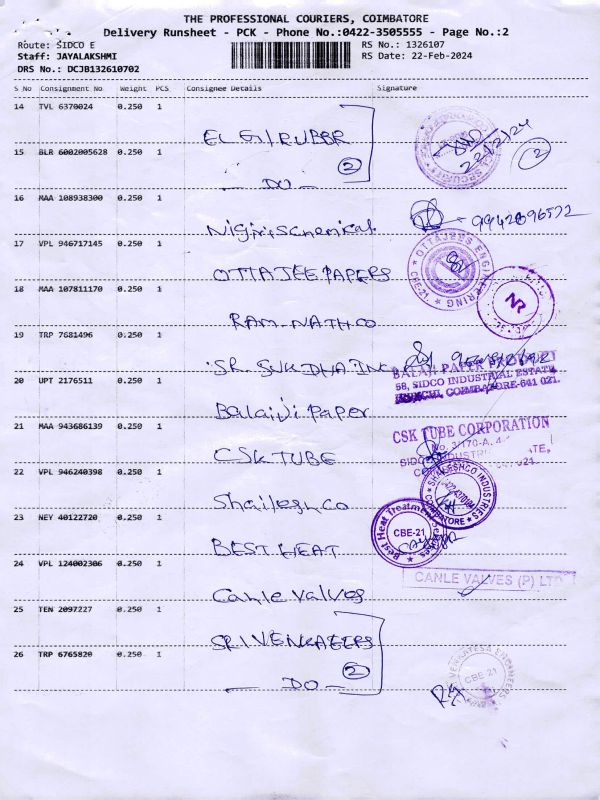 THE PROFESSIONAL COURIERS, COIMBATORE
Delivery Runsheet - PCK - Phone No.:0422-3505555 - Page No.:2
Route: SIDCO E RS No.: 1326107
Staff: JAYALAKSHMI RS Date: 22-Feb-2024
DRS No.: DCJB132610702
S No Consignment No Weight PCS Consignee Details Signature
14 TVL 6370024 0.250 1
ELGI RUBBR
22/2/24
15 BLR 6002005628 0.250 1
2 2
- DO -
16 MAA 108938300 0.250 1
Nigiris Chemical
17 VPL 946717145 0.250 1
OTTAJEE PAPERS OTTAJEES ENGINEERING CBE-21
18 MAA 107811170 0.250 1
RAM-NATH CO NR
19 TRP 7681496 0.250 1
SR SUKDHA INC
20 UPT 2176511 0.250 1
BALAJI PAPER
58, SIDCO INDUSTRIAL ESTATE
COIMBATORE-641 021.
Balaji Paper
21 MAA 943686139 0.250 1
CSK TUBE CORPORATION
CSK TUBE
22 VPL 946240398 0.250 1
SHAILESHCO INDUSTRIES COIMBATORE
Shailesh Co
23 NEY 40122720 0.250 1
Best Heat Treatment CBE-21
BEST HEAT
24 VPL 124002306 0.250 1
CANLE VALVES (P) LTD
Canle Valves
25 TEN 2097227 0.250 1
SRI VENKATERS
26 TRP 6765820 0.250 1
2
VENKATESA ENGINEERS CBE 21
- DO -